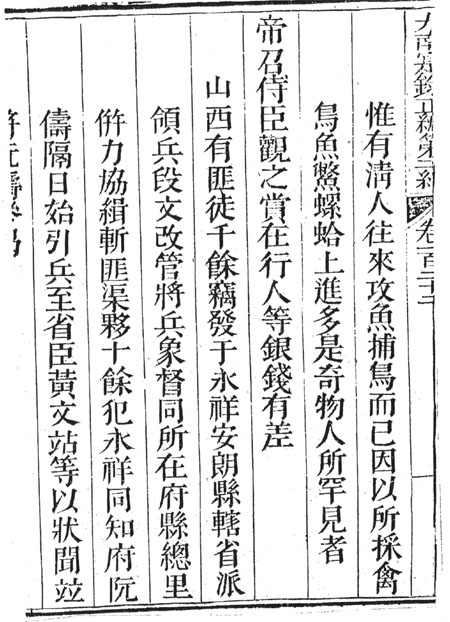 大南寔錄正編第二紀
惟有清人往來攻魚捕鳥而已因以所採禽
鳥魚鱉螺蛤上進多是奇物人所罕見者
帝召侍臣觀之賞在行人等銀錢有差
山西有匪徒千餘竊發于永祥安朗縣轄省派
領兵段文改管將兵象督同所在府縣總里
併力協緝斬匪渠夥十餘犯永祥同知府阮
儔隔日始引兵至省臣黃文站等以狀聞竝